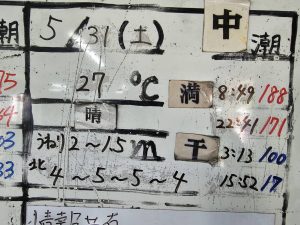 潮
5/31(土)
中潮
27℃
満
8:49/188
晴
22:41/171
うねり2～1.5m
干
3:13/100
北4～5～5～4
15:52/17